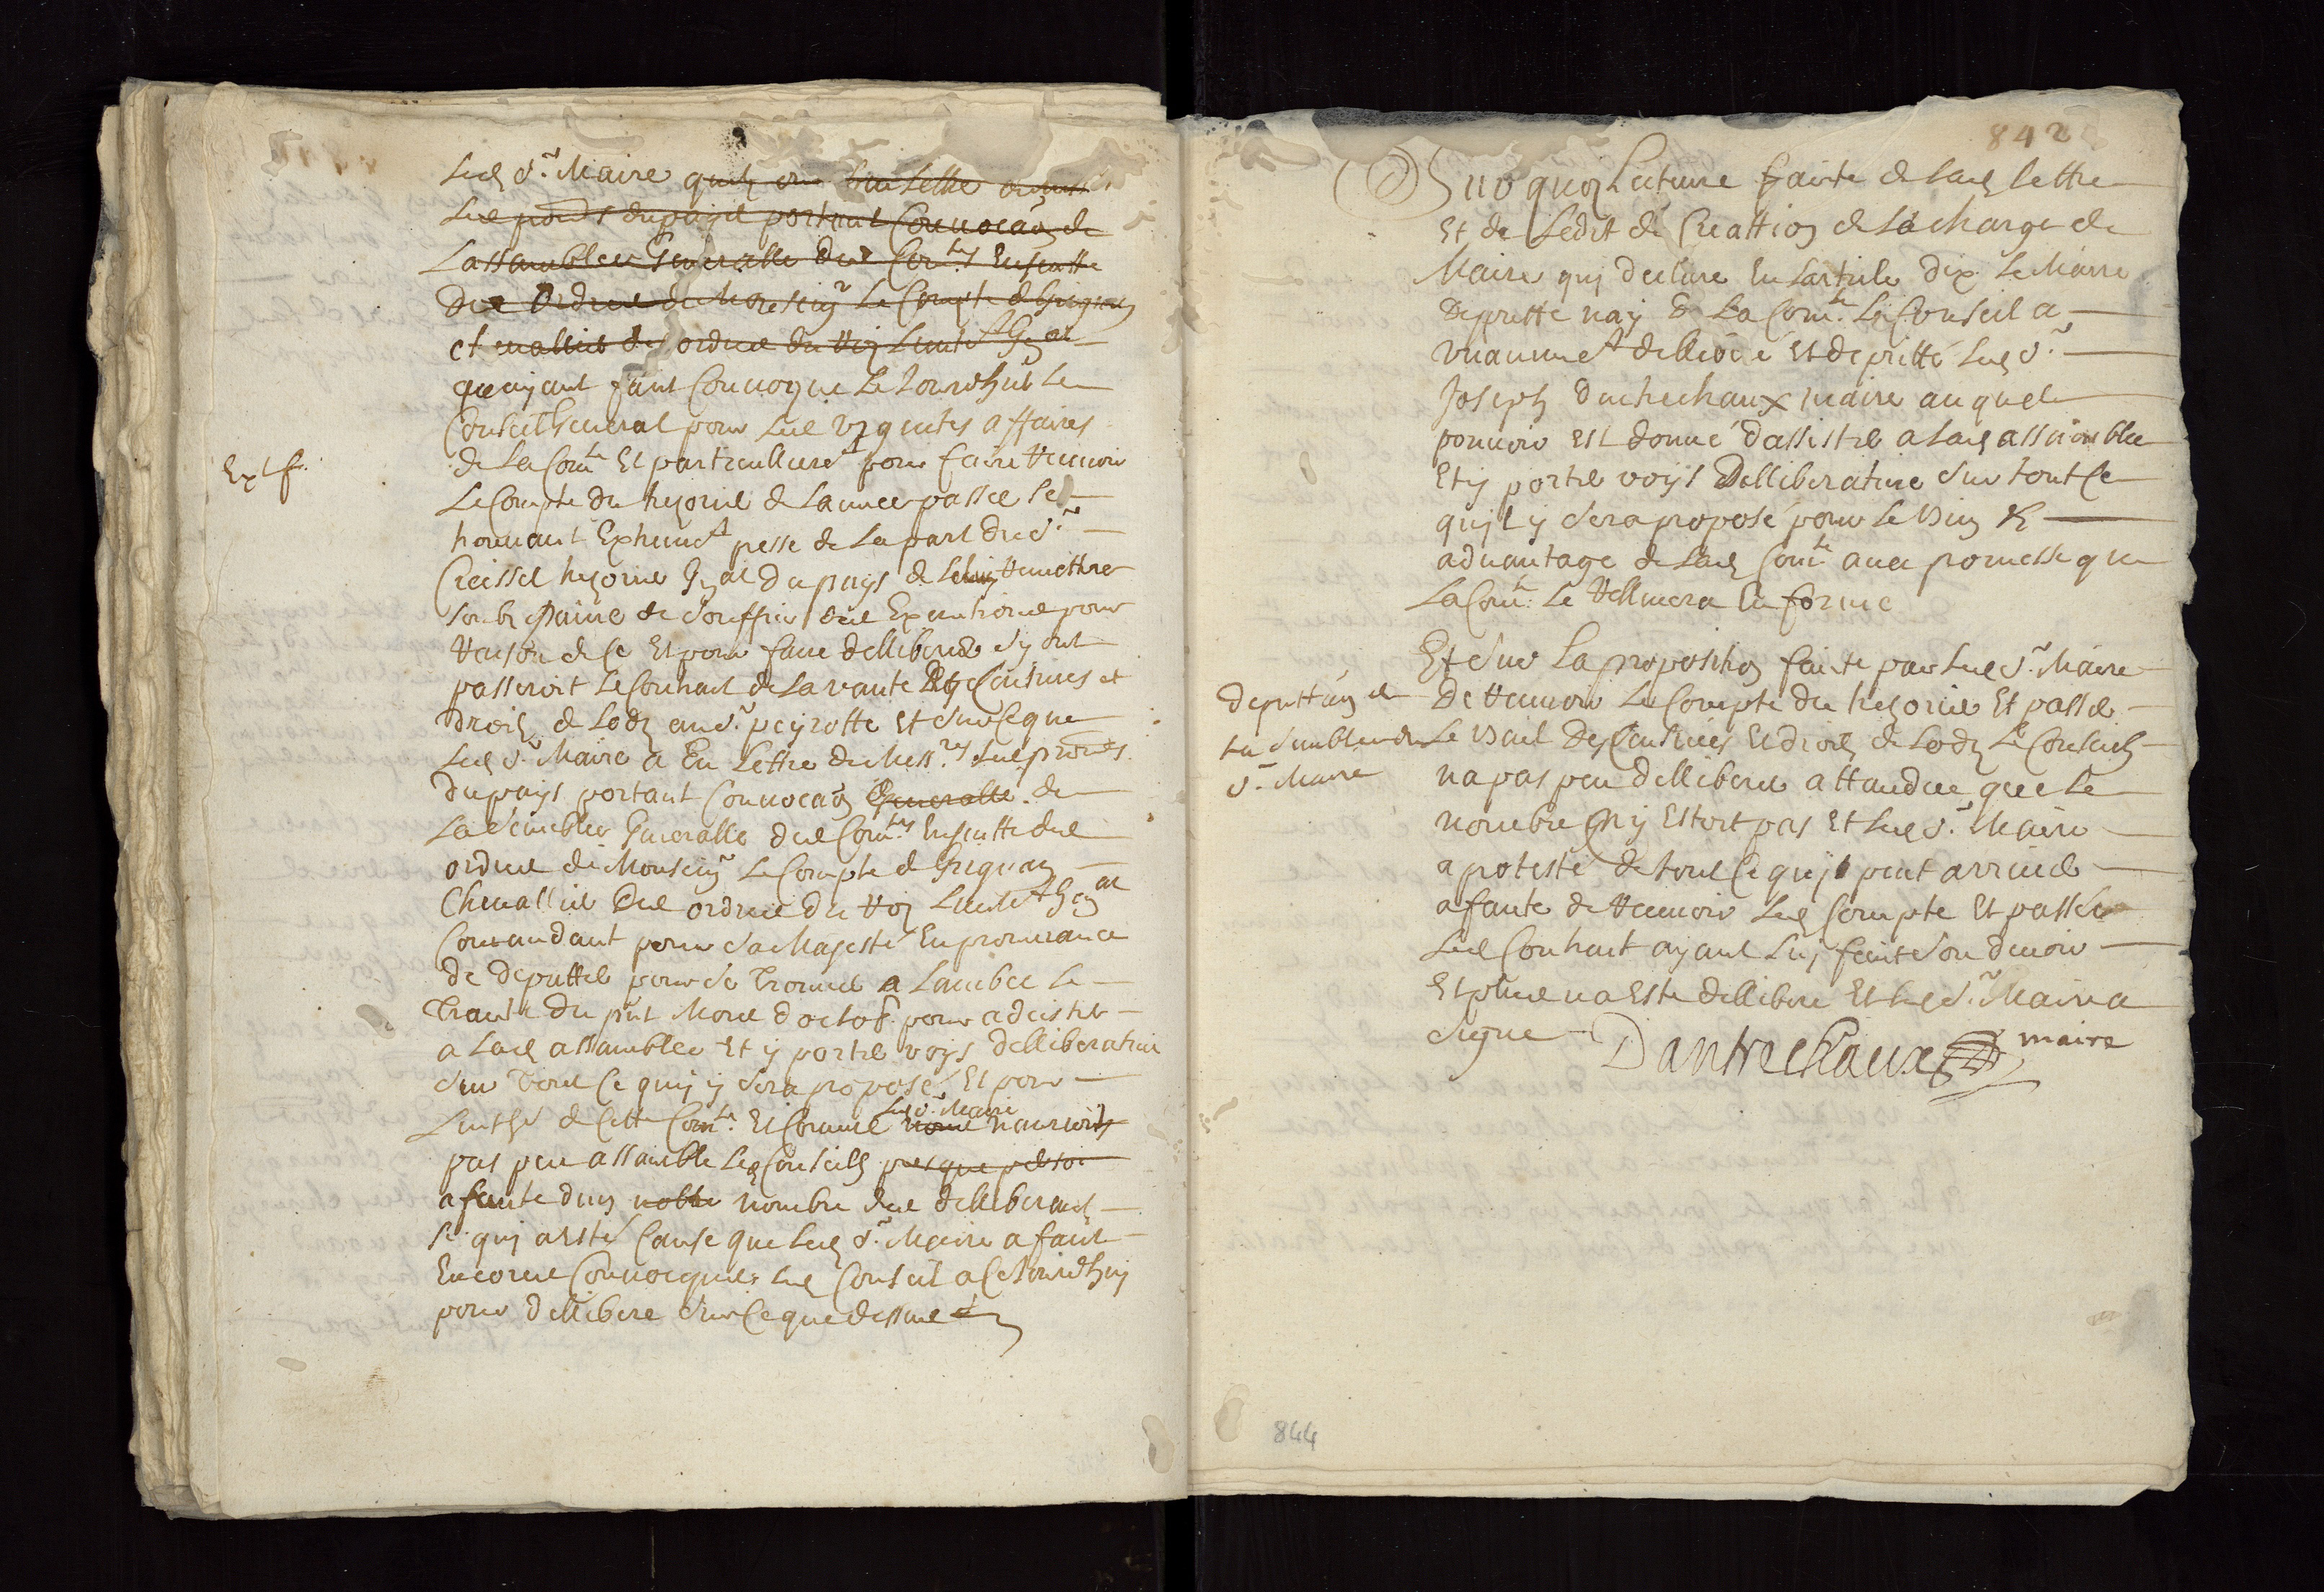 Led Sr Maire quil ont une lettre
procurs du païs portant Convocaôn de
Lassamblee Generalle des Comtés Ensuitte
des Ordres de Monseigr Le Compte de Grignan
et des ordres du Roy Lieutt Gñal
quayant fait Convoquer Le Jourdhuy Le
Conseil General pour Les Urgentes affaires
de La Comté Et particullieremt pour faire Recevoir
Extf.
Le Compte du trezorier de Lannee passee se
trouvant de La part du Sr
Creissel trezorier Gñal du pays de Remettre
soubz paine de Souffrir des Executions pour
Raison de Ce Et pour faire delliberer Sy ont
passeroit Le Contract de La vante des Censives et
droitz de Lodz au Sr peyrotte Et Sur Ce que
Led Sr Maire a Eu Lettre de Messrs Les procurs
du pays portant Convocaôn Generalle de
La Semblee Generalle des Comtés Ensuitte des
ordres de Monseigr Le Compte de Grignan
Chevallier des ordres du Roy Lieutt Gñal
Comandant pour Sa Majesté En provence
de deputter pour Se Trouver a Lambesc Le
Trante du pnt Mois doctob. pour adcister
a Lad assamblee Et y porter voys delliberative
Sur Tout Ce quy y Sera proposé Et pour
Linthé de Cette Comté. Et Comme
Led Sr Maire
nous naurions
pas peu assamblé Les Conseils
a faute dun noble nombre des delliberants
Ce quy a esté Cause que Led Sr Maire a fait
Encores Convocquer Led Conseil a Cejourdhuy
pour dellibere Sur Ce que dessus
842
Sur quoy Lecture faite de Lad Lettre
Et de Ledit de Creattion de La Charge de
Maire quy declare En Larticle dix Le Maire
deputté nay de La Comté. Le Conseil a
unanimet delliberé Et deputté Led Sr
Joseph Dantrechaux maire auquel
pouvoir Est donné dassister a Lad assamblee
Et y porter voys Delliberative Sur tout Ce
quy y Sera proposé pour Le bien &
advantage de Lad Comté avec promesse que
La Comté Le Rellevera En forme
Et Sur La proposition faite par Led Sr Maire
deputtaôn a
La Semblee du
Sr Maire
De Recevoir Le Compte du trezorier Et passer
Le Bail des Censives Et droitz de Lodz Le Conseil
na pas peu delliberer attandeu que Le
nombre ny Estoit pas Et Led Sr Maire
a protesté de tout Ce quy peut arriver
a faute de Recevoir Led Compte Et passer
Led Contract ayant Luy fait Son devoir
Et plus na Esté delliberé Et Led Sr Maire a
Signé
Dantrechaux maire
844